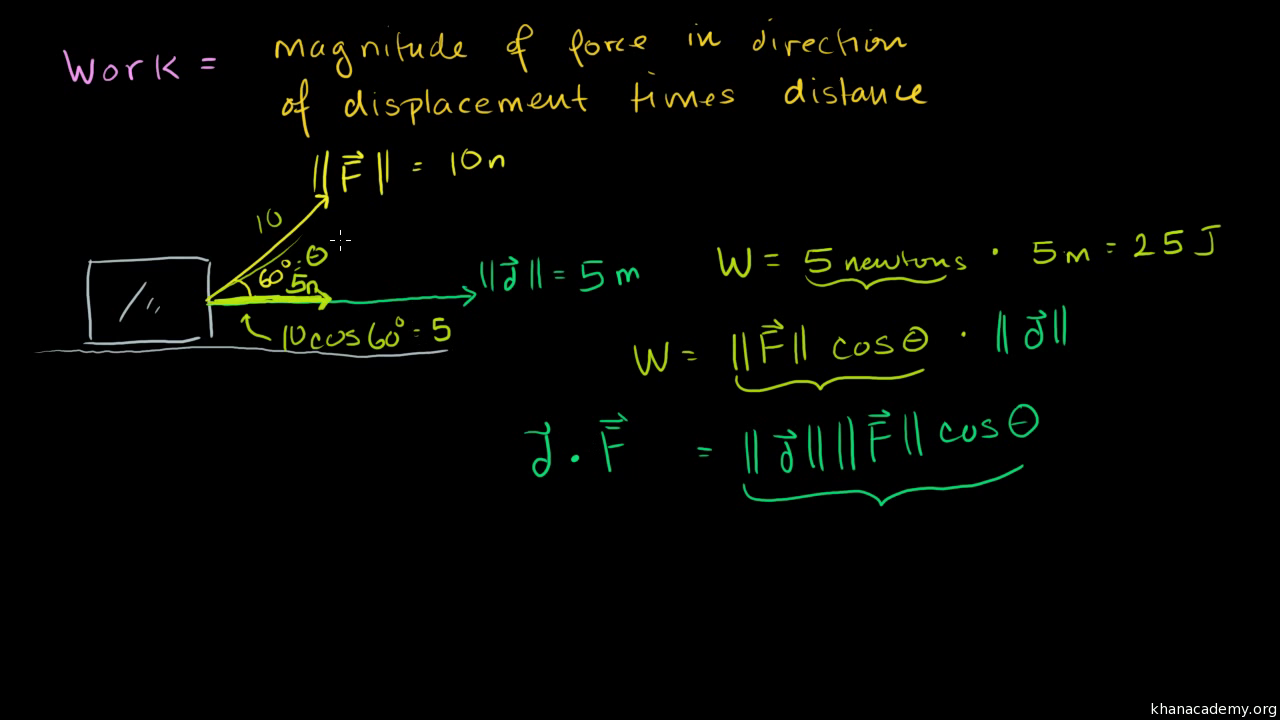 Work = magnitude of force in direction
of displacement times distance
||F⃗|| = 10n
10
60° = θ
5n
||d⃗|| = 5m
10cos60° = 5
W = 5 newtons · 5m = 25 J
W = ||F⃗|| cosθ · ||d⃗||
d⃗ · F⃗ = ||d⃗|| ||F⃗|| cosθ
khanacademy.org